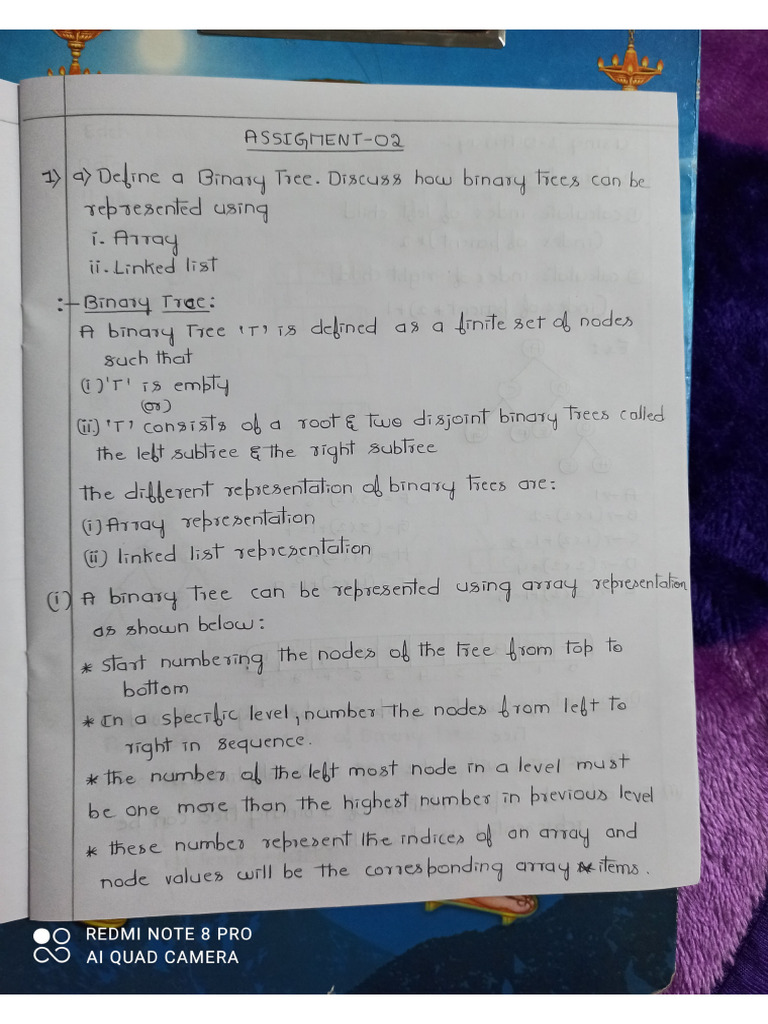 ASSIGMENT-02
1) a) Define a Binary Tree. Discuss how binary trees can be
represented using
i. Array
ii. Linked list
:- Binary Tree:
A binary Tree 'T' is defined as a finite set of nodes
such that
(i) 'T' is empty
(or)
(ii) 'T' consists of a root & two disjoint binary trees called
the left subtree & the right subtree
the different representation of binary trees are:
(i) Array representation
(ii) linked list representation
(i) A binary tree can be represented using array representation
as shown below:
* start numbering the nodes of the tree from top to
bottom
* In a specific level, number the nodes from left to
right in sequence.
* the number of the left most node in a level must
be one more than the highest number in previous level
* these number represent the indices of an array and
node values will be the corresponding array items.
REDMI NOTE 8 PRO
AI QUAD CAMERA